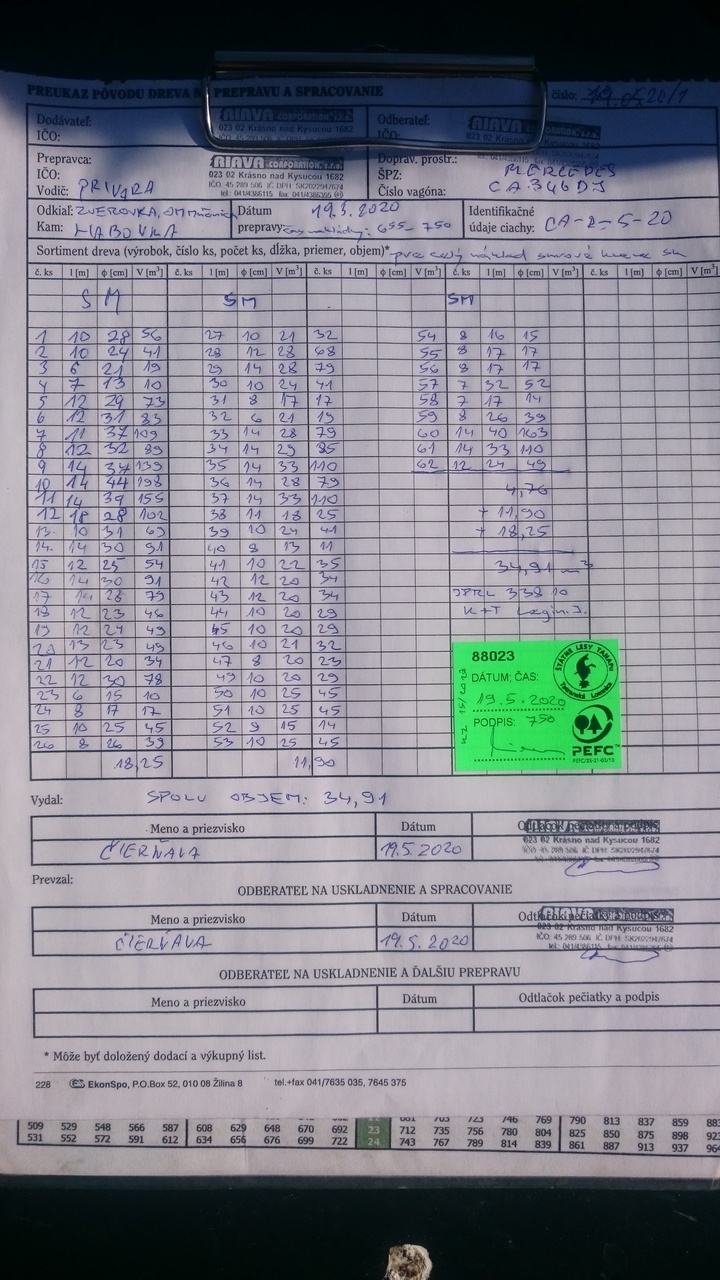 PREUKAZ PÔVODU DREVA N PREPRAVU A SPRACOVANIE číslo: 19.05.20/1
Dodávateľ: RIAVA CORPORATION, s.r.o. Odberateľ: RIAVA CORPORATION
IČO: 023 02 Krásno nad Kysucou 1682 IČO:
Prepravca: RIAVA CORPORATION, s.r.o. Doprav. prostr.: MERCEDES
IČO: 023 02 Krásno nad Kysucou 1682 ŠPZ: CA 346 DJ
IČO: 45 289 506 IČ DPH SK2022947674
Vodič: PRIVARA tel.: 041/4386115 Číslo vagóna:
Odkiaľ: ZVEROVKA, Dátum 19.5.2020 Identifikačné CA-2-5-20
Kam: HABOVKA prepravy: čas nakládky: 655 - 750 údaje ciachy:
Sortiment dreva (výrobok, číslo ks, počet ks, dĺžka, priemer, objem)* pre celý náklad
č. ks l [m] ϕ [cm] V [m³] č. ks l [m] ϕ [cm] V [m³] č. ks l [m] ϕ [cm] V [m³] č. ks l [m] ϕ [cm] V [m³] č. ks l [m] ϕ [cm] V [m³]
SM SM SM
1 10 28 56 27 10 21 32 54 8 16 15
2 10 24 41 28 12 28 68 55 8 17 17
3 6 21 19 29 14 28 79 56 8 17 17
4 7 13 10 30 10 24 41 57 7 32 52
5 12 29 73 31 8 17 17 58 7 17 14
6 12 31 83 32 6 21 19 59 8 26 39
7 11 37 109 33 14 28 79 60 14 40 163
8 12 32 89 34 14 29 85 61 14 33 110
9 14 37 139 35 14 33 110 62 12 24 49
10 14 44 198 36 14 28 79 4,76
11 14 39 155 37 14 33 110
12 18 28 102 38 11 18 25 + 11,90
13. 10 31 69 39 10 24 41 + 18,25
14. 14 30 91 40 8 13 11
15 12 25 54 41 10 22 35 34,91 m³
16 14 30 91 42 12 20 34
17 14 28 79 43 12 20 34 JPRL 338 10
18 12 23 46 44 10 20 29 K+T
19 12 24 49 45 10 20 29
20 13 23 49 46 10 21 32
21 12 20 34 47 8 20 23
22 12 30 78 49 10 20 29
23 6 15 10 50 10 25 45
24 8 17 17 51 10 25 45
25 10 25 45 52 9 15 14
26 8 26 39 53 10 25 45
18,25 11,90
88023
DÁTUM; ČAS:
19.5.2020
PODPIS: 750
ŠTÁTNE LESY TANAPU
Tatranská Lomnica
PEFC™
Vydal: SPOLU OBJEM: 34,91
Meno a priezvisko Dátum Odtlačok pečiatky a podpis
ČIERŇAVA 19.5.2020 023 02 Krásno nad Kysucou 1682
IČO: 45 289 506 IČ DPH SK2022947674
Prevzal:
ODBERATEĽ NA USKLADNENIE A SPRACOVANIE
Meno a priezvisko Dátum Odtlačok pečiatky a podpis
ČIERŇAVA 19.5.2020 023 02 Krásno nad Kysucou 1682
IČO: 45 289 506 IČ DPH SK2022947674
ODBERATEĽ NA USKLADNENIE A ĎALŠIU PREPRAVU
Meno a priezvisko Dátum Odtlačok pečiatky a podpis
* Môže byť doložený dodací a výkupný list.
228 EkonSpo, P.O.Box 52, 010 08 Žilina 8 tel.+fax 041/7635 035, 7645 375
509 529 548 566 587 608 629 648 670 692 23 712 735 756 780 804 825 850 875 898
531 552 572 591 612 634 656 676 699 722 24 743 767 789 814 839 861 887 913 937